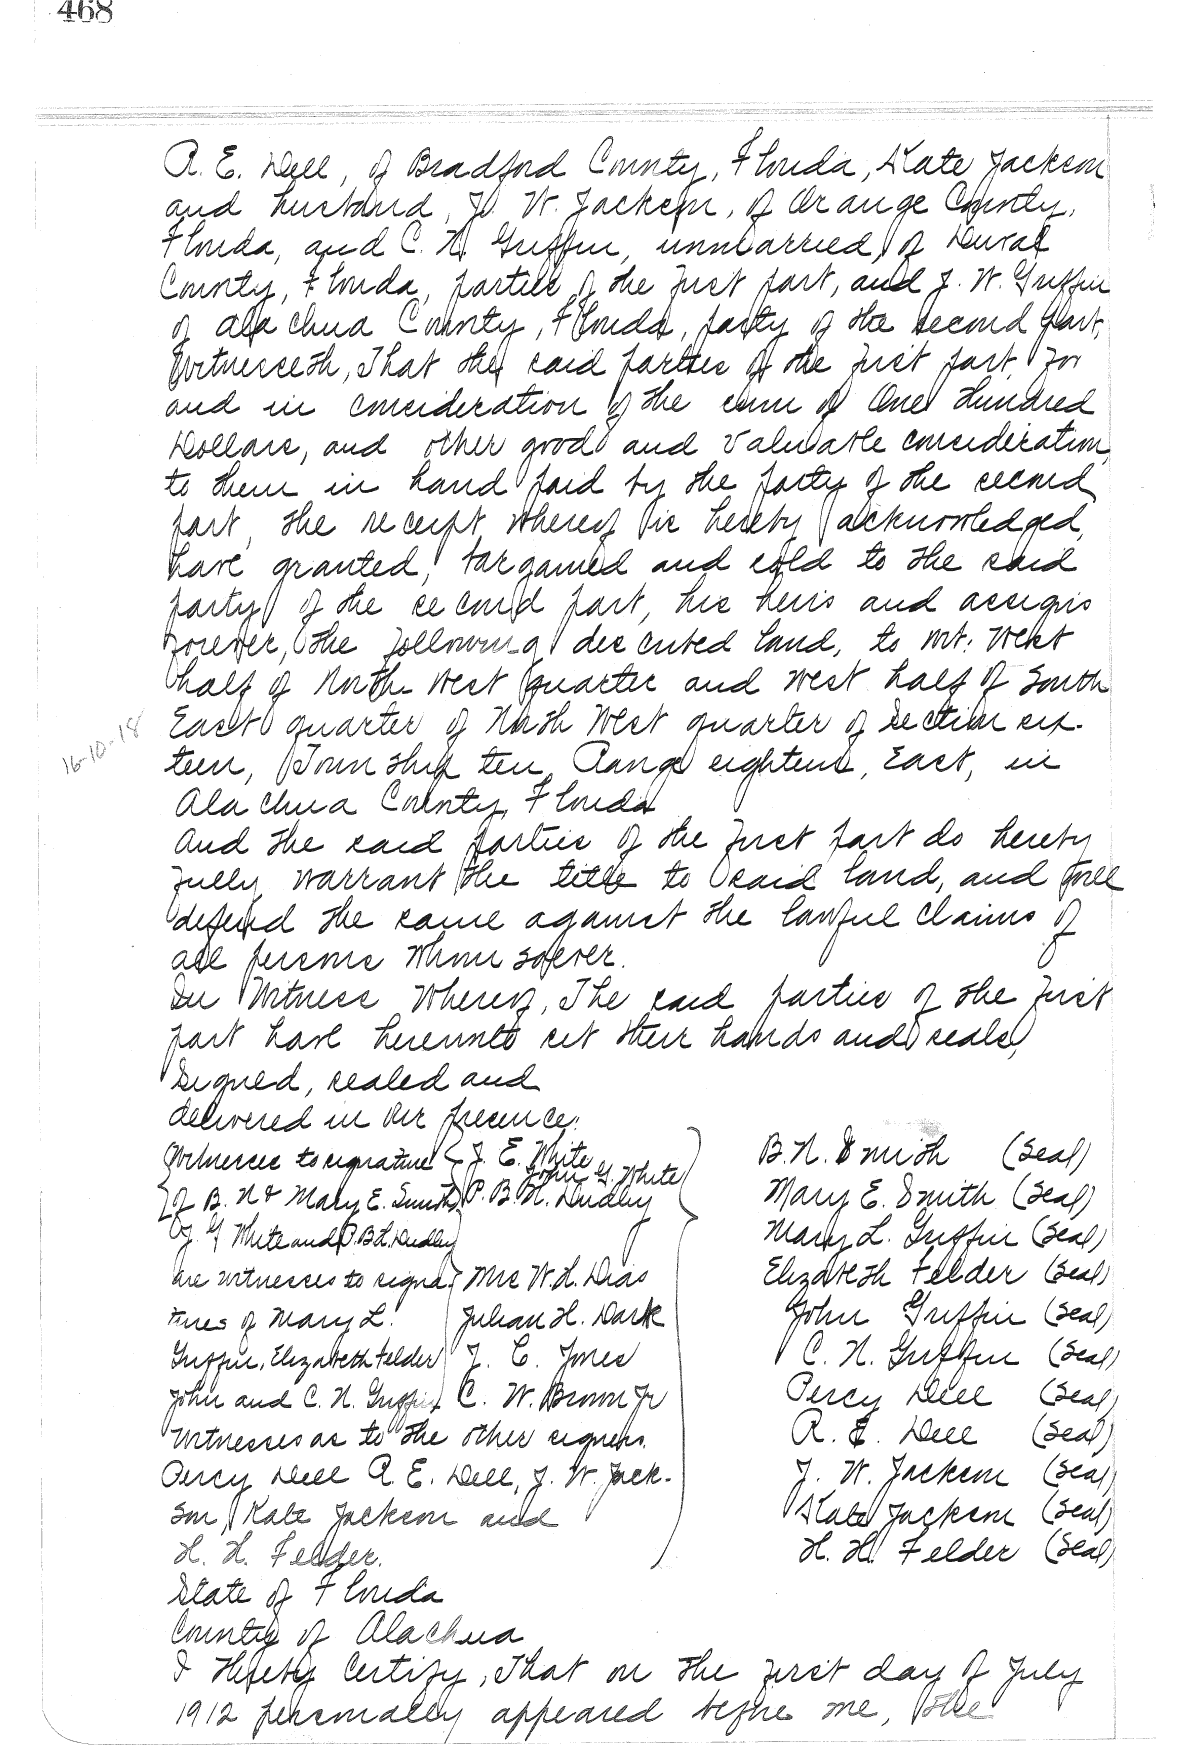 468
R. E. Dell, of Bradford County, Florida, Kate Jackson
and husband, J. W. Jackson, of Orange County,
Florida, and C. N. Griffin, unmarried, of Duval
County, Florida, parties of the first part, and J. W. Griffin
of Alachua County, Florida, party of the second part,
Witnesseth, That the said parties of the first part, for
and in consideration of the sum of One Hundred
Dollars, and other good and valuable consideration,
to them in hand paid by the party of the second
part, the receipt whereof is hereby acknowledged,
have granted, bargained and sold to the said
party of the second part, his heirs and assigns
forever, the following described land, to wit: West
half of North West quarter and west half of South
East quarter of North West quarter of Section six-
16-10-18
teen, Township ten, Range eighteen, East, in
Alachua County, Florida
And the said parties of the first part do hereby
fully warrant the title to said land, and will
defend the same against the lawful claims of
all persons whomsoever.
In Witness Whereof, The said parties of the first
part have hereunto set their hands and seals,
Signed, sealed and
delivered in our presence:
Witnesses to signature J. E. White B. N. Smith (Seal)
John G. White
of B. N & Mary E. Smith P. B. H. Dudley Mary E. Smith (Seal)
J. G White and P. B. H. Dudley Mary L. Griffin (Seal)
are witnesses to signa- Mrs W. H. Dias Elizabeth Felder (Seal)
tures of Mary L. Julian H. Dark John Griffin (Seal)
Griffin, Elizabeth Felder J. C. Jones C. N. Griffin (Seal)
John and C. N. Griffin C. W. Brown Jr Percy Dell (Seal)
Witnesses as to the other signers. R. E. Dell (Seal)
Percy Dell R. E. Dell, J. W. Jack- J. W. Jackson (Seal)
son, Kate Jackson and Kate Jackson (Seal)
H. H. Felder. H. H. Felder (Seal)
State of Florida
County of Alachua
I Hereby Certify, That on the first day of July
1912 personally appeared before me, the